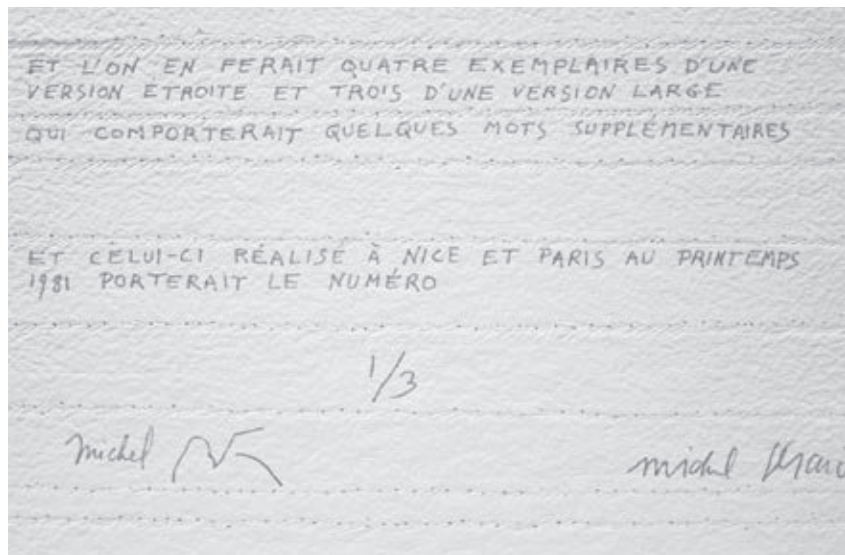 ET L'ON EN FERAIT QUATRE EXEMPLAIRES D'UNE
VERSION ÉTROITE ET TROIS D'UNE VERSION LARGE
QUI COMPORTERAIT QUELQUES MOTS SUPPLÉMENTAIRES
ET CELUI-CI RÉALISÉ À NICE ET PARIS AU PRINTEMPS
1981 PORTERAIT LE NUMÉRO
1/3
michel
michel